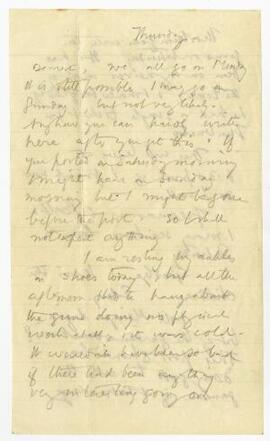 Thursday
we all go on Monday
It is still possible I may go on
Sunday but not very likely.
Anyhow you can hardly write
here after you get this. If
you posted on Saturday morning
I might have on Sunday
morning but I might be gone
before the post. So I shall
not expect anything
I am resting my ankles
in shoes today, but all the
afternoon I had to hang about
the guns doing no physical
work at all & it was cold.
It wouldn't have been so bad
if there had been anything
very interesting going